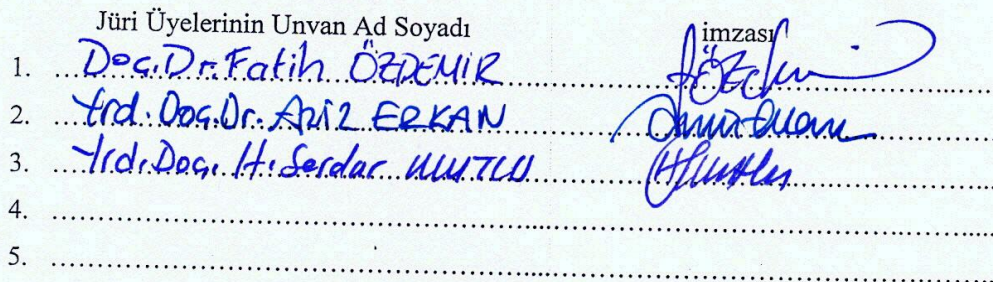 Jüri Üyelerinin Unvan Ad Soyadı imzası
1. Doç.Dr. Fatih ÖZDEMİR
2. Yrd. Doç.Dr. Aziz ERKAN
3. Yrd. Doç. H. Serdar MUTLU
4.
5.